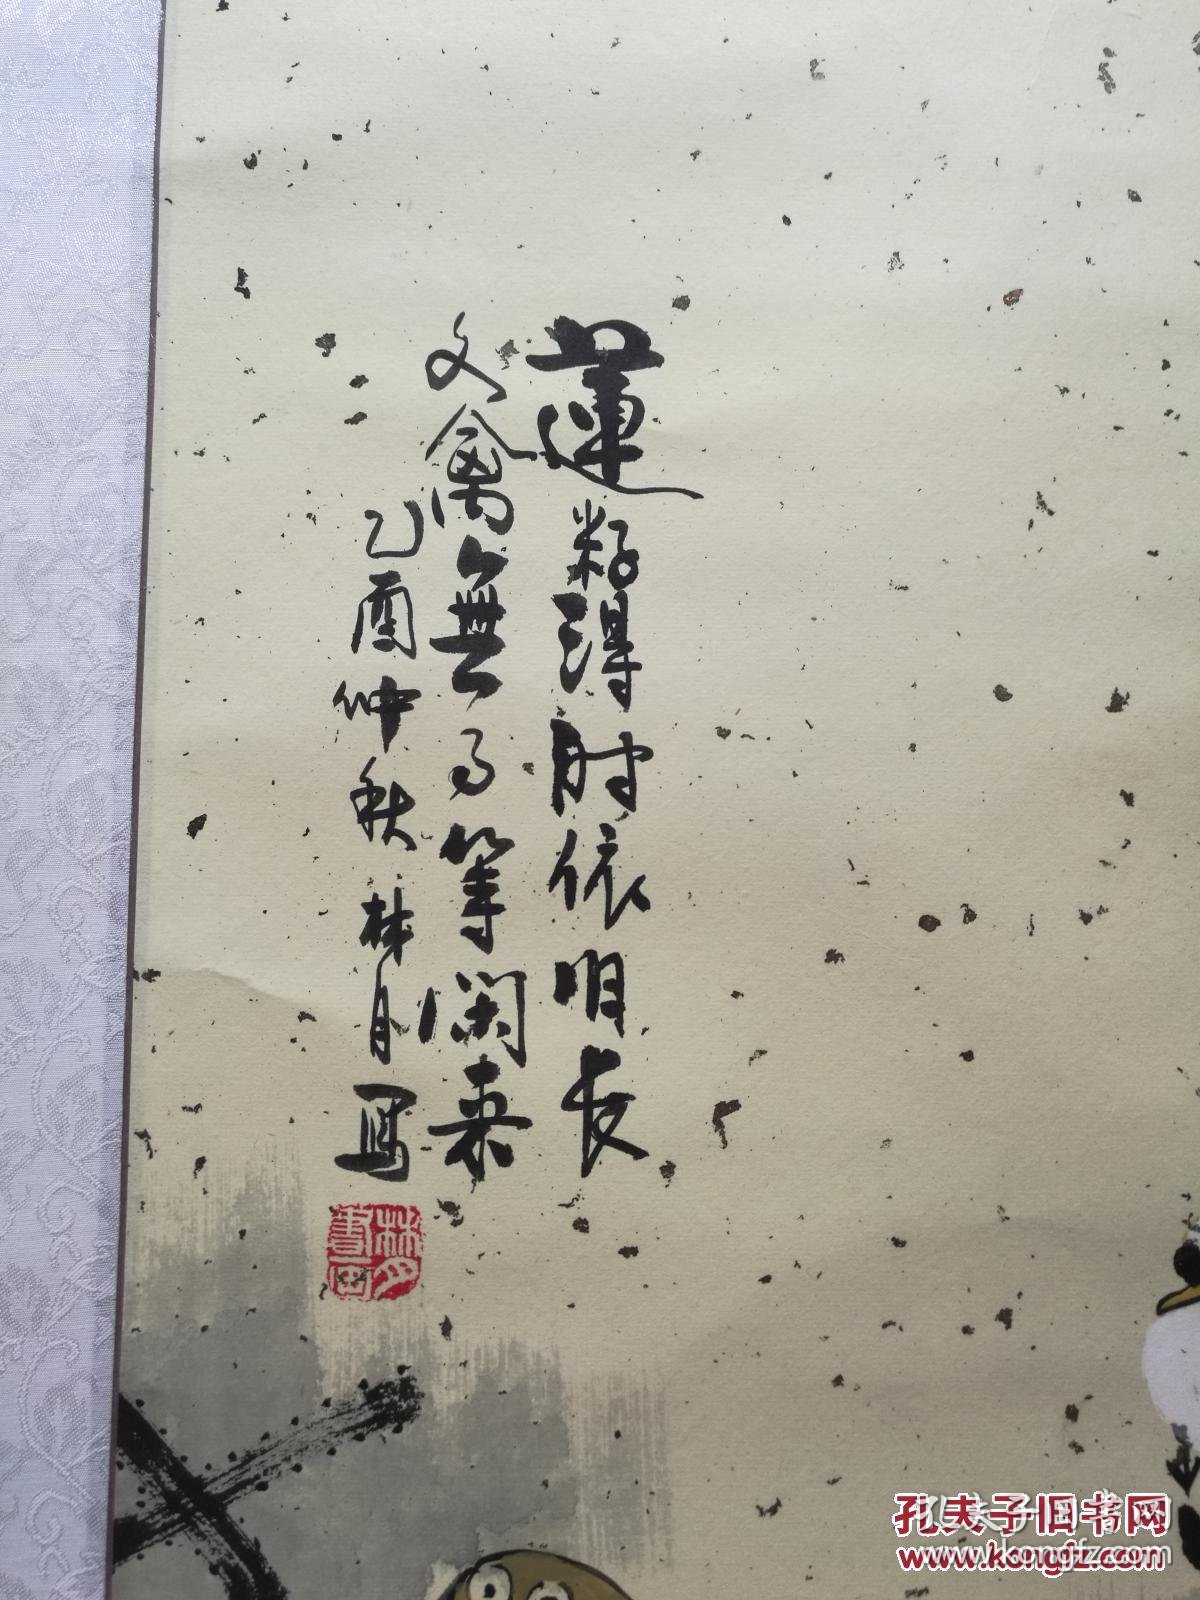 蓮籽得时依旧長
文禽無事等閑来
乙酉仲秋林月寫
林月書画
孔夫子旧书网
www.kongfz.com